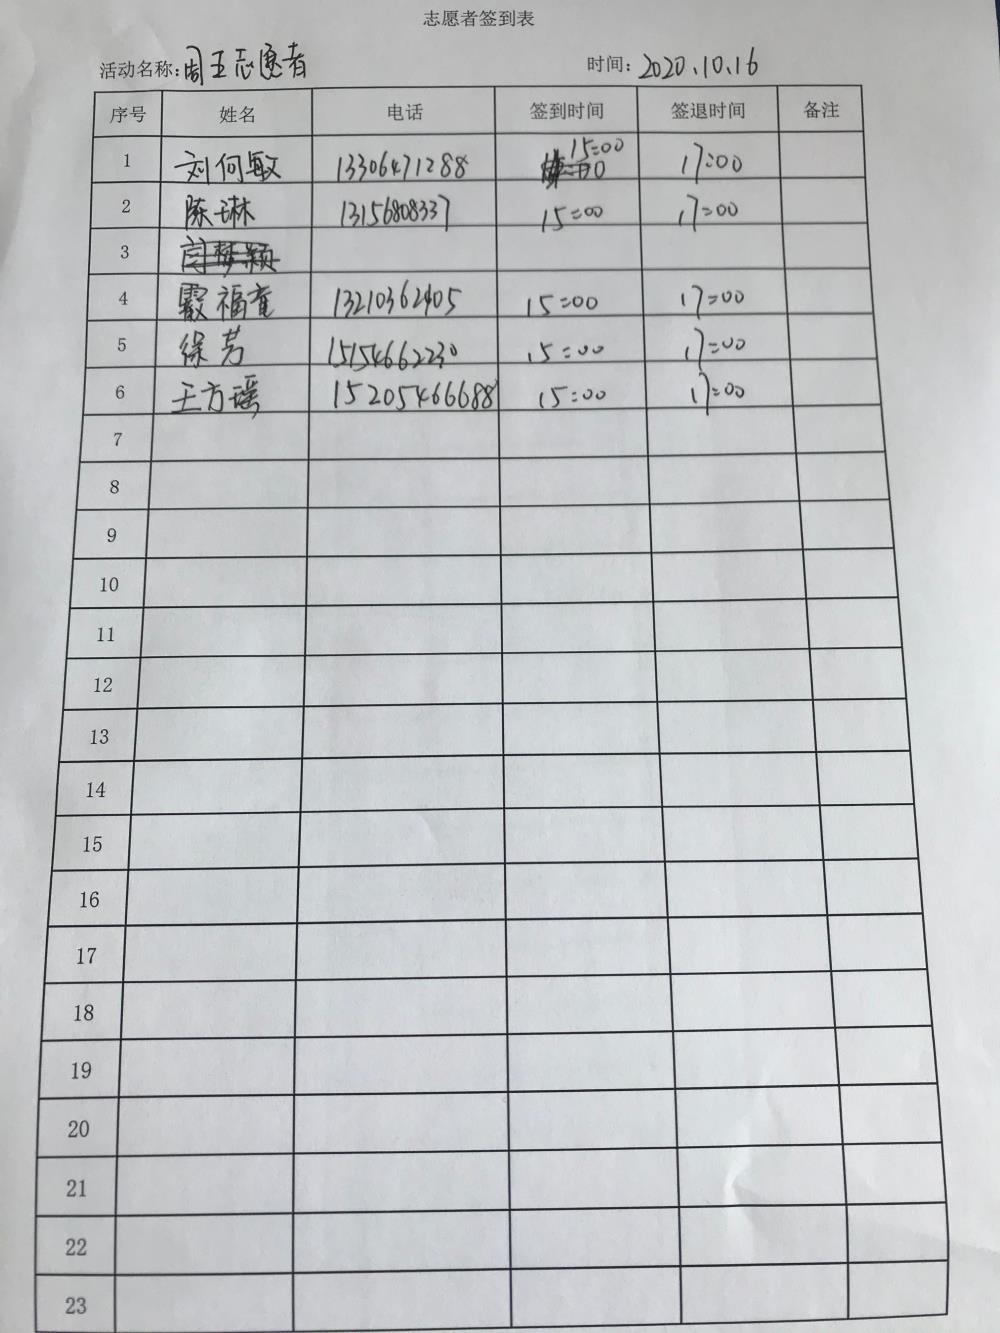 志愿者签到表
活动名称：周五志愿者 时间：2020.10.16
序号 姓名 电话 签到时间 签退时间 备注
1 刘何敏 13306471288 15:00 17:00
2 陈琳 13156808337 15:00 17:00
3
4 福童 13210362405 15:00 17:00
5 徐芳 15154662230 15:00 17:00
6 王方瑶 15205466688 15:00 17:00
7
8
9
10
11
12
13
14
15
16
17
18
19
20
21
22
23